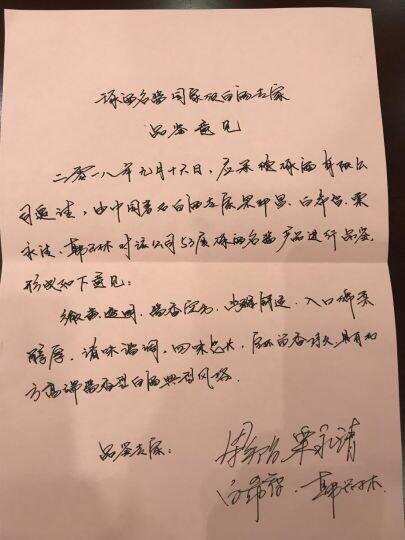 琢酒名酱国家级白酒专家
品鉴意见
二零一八年九月十六日，应茅台镇琢酒有限公
司邀请，由中国著名白酒专家吴御昌、白希智、栗
永清、韩兴林对该公司53度琢酒名酱产品进行品鉴，
形成如下意见：
微黄透明，酱香突出，幽雅舒适，入口绵柔
醇厚，诸味谐调，回味悠长，空杯留香持久，具有
高端酱香型白酒典型风格。
品鉴专家：
栗永清
白希智 韩兴林